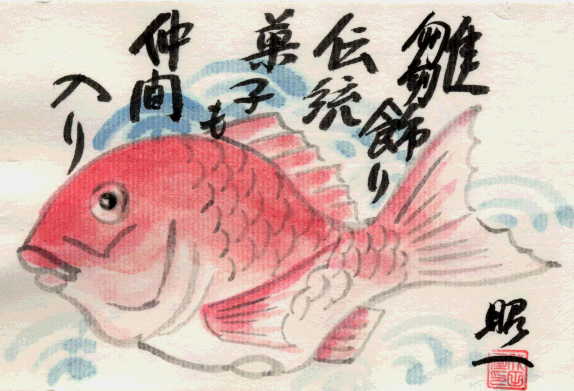 雛飾り
伝統
菓子も
仲間
入り
昭一